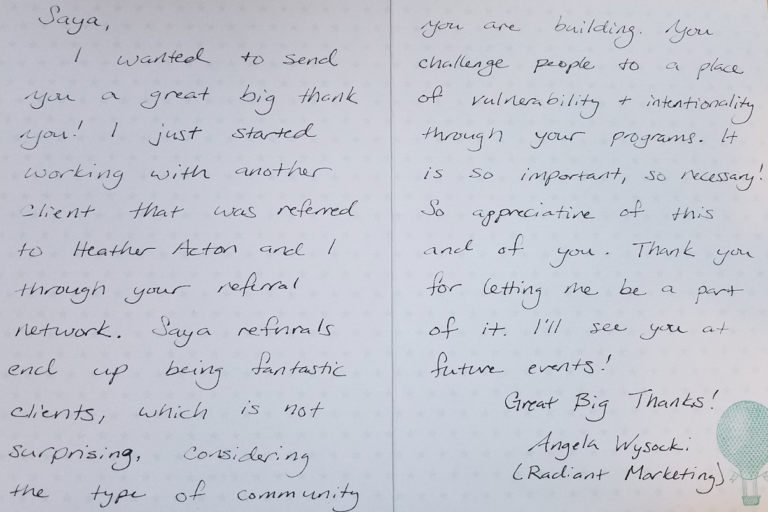 Saya,
I wanted to send
you a great big thank
you! I just started
working with another
client that was referred
to Heather Acton and I
through your referral
network. Saya referrals
end up being fantastic
clients, which is not
surprising, considering
the type of community
you are building. You
challenge people to a place
of vulnerability + intentionality
through your programs. It
is so important, so necessary!
So appreciative of this
and of you. Thank you
for letting me be a part
of it. I'll see you at
future events!
Great Big Thanks!
Angela Wysocki
(Radiant Marketing)